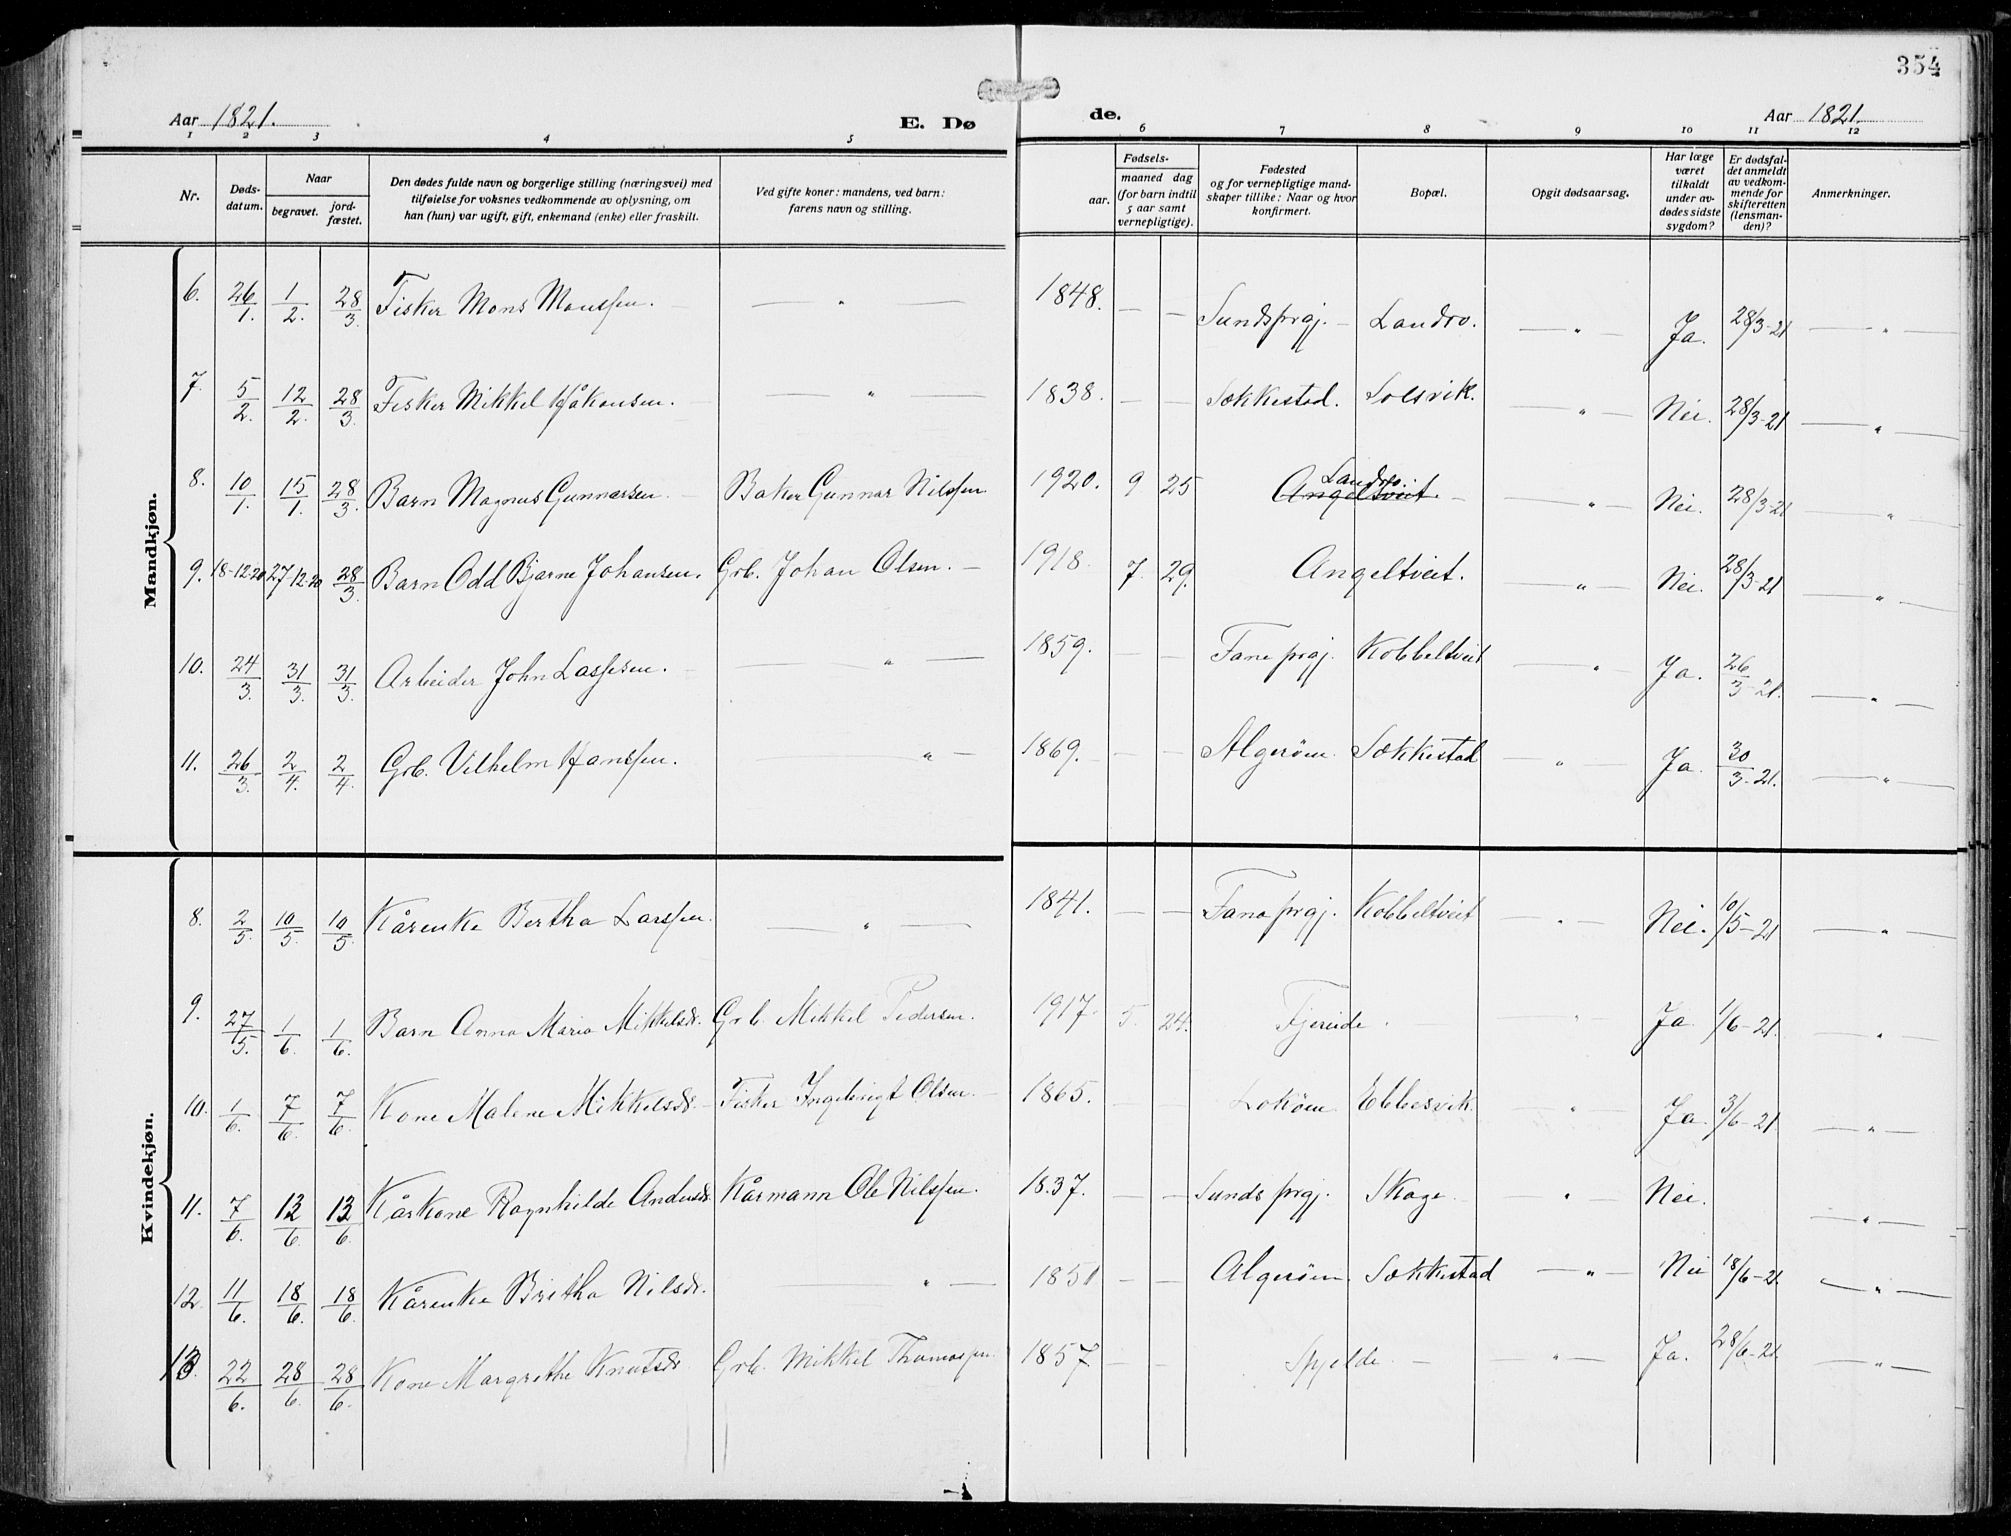 354
Aar 1821. E. Dø de. Aar 1821.
1 2 3 4 5 6 7 8 9 10 11 12
Nr. Døds-datum. Naar begravet. jord-fæstet. Den dødes fulde navn og borgerlige stilling (næringsvei) med tilføielse for voksnes vedkommende av oplysning, om han (hun) var ugift, gift, enkemand (enke) eller fraskilt. Ved gifte koner: mandens, ved barn: farens navn og stilling. Fødsels- aar. maaned dag (for barn indtil 5 aar samt vernepligtige). Fødested og for vernepligtige mandskaper tillike: Naar og hvor konfirmert. Bopæl. Opgit dødsaarsag. Har læge været tilkaldt under avdødes sidste sygdom? Er dødsfaldet anmeldt av vedkommende for skifteretten (lensmanden)? Anmerkninger.
Mandkjøn.
6. 26/1. 1/2. 28/3. Fisker Mons Monssen. — " — 1848. — — Sundsprgj. — Landro. — " — Ja. 28/3-21 — " —
7. 5/2. 12/2. 28/3. Fisker Mikkel Håkonsen. — " — 1838. — — Sækkestad. Solsvik. — " — Nei. 28/3-21 — " —
8. 10/1. 15/1. 28/3. Barn Magnus Gunnarsen. — Baker Gunnar Nilssen. 1920. 9 25 Landro. Angeltveit. — — " — Nei. 28/3-21 — " —
9. 18-12-20 27-12-20 28/3. Barn Odd Bjarne Johansen. Grb. Johan Olsen. — 1918. 7. 29. Angeltveit. — " — Nei. 28/3-21 — " —
10. 24/3. 31/3. 31/3. Arbeider John Lassesen. — " — 1859. — — Fane prgj. Kobbeltveit — " — Ja. 26/3-21. — " —
11. 26/3. 2/4. 2/4. Grb. Vilhelm Hanssen. " — 1869. — — Algerøen. Sækkestad — " — Ja. 30/3-21. — " —
Kvindekjøn.
8. 2/5. 10/5. 10/5. Kårenke Bertha Larssen. — " — 1841. — — Fana prgj. Kobbeltveit — " — Nei. 10/5-21 — " —
9. 27/5. 1/6. 1/6. Barn Anna Maria Mikkelsdr. Grb. Mikkel Pedersen. 1917. 5. 24. Fjereide. " Ja. 1/6-21. — " —
10. 1/6. 7/6. 7/6. Kone Malene Mikkelsdr. — Fisker Ingebrigt Olsen. — 1865. — — Lokøen. Ebbesvik. — " — Ja. 3/6-21 — " —
11. 7/6. 13/6. 13/6. Kårkone Ragnhilde Andersdr. Kårmann Ole Nilssen. 1837. — Sunds prgj. Skoge. — " — Nei. — " —
12. 11/6. 18/6. 18/6. Kårenke Britha Nilsdr. " — 1851 — — Algerøen. Sækkestad — " — Nei 18/6-21. — " —
13. 22/6. 28/6. 28/6. Kone Margrethe Knutsdr. Grb. Mikkel Thomassen. 1857. — — Spjelde. — " — Ja. 28/6-21. — " —